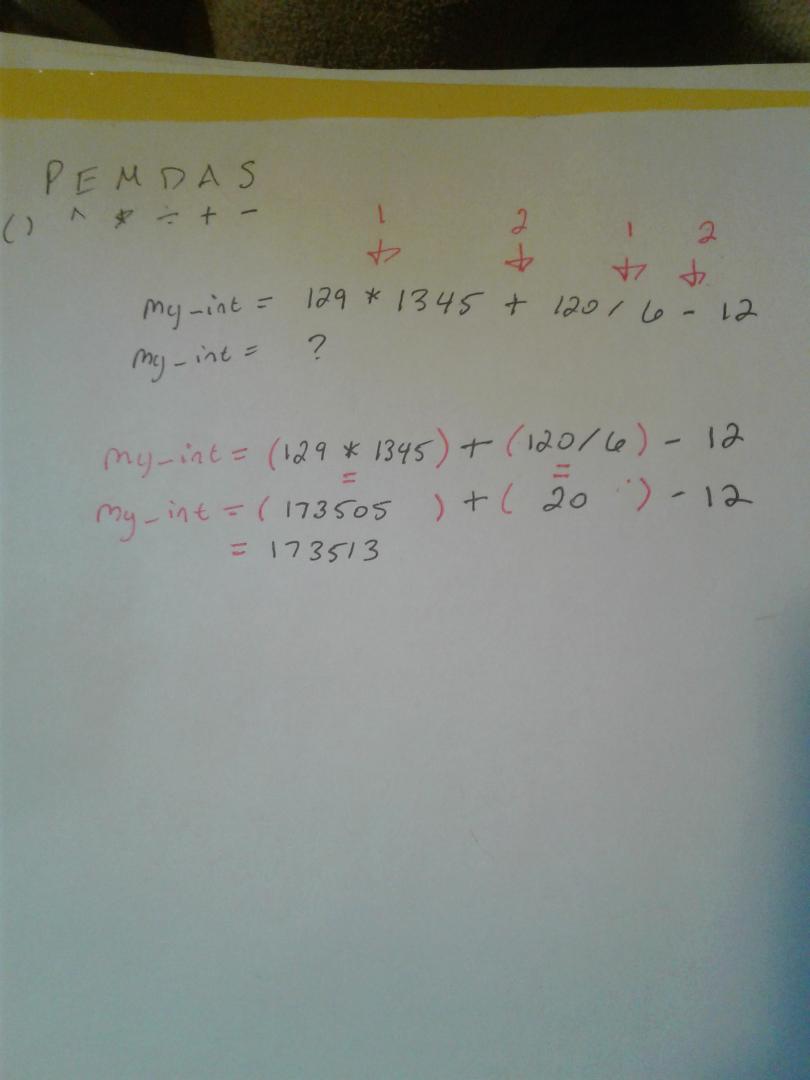 PEMDAS
() ^ * ÷ + -
1 2 1 2
my_int = 129 * 1345 + 120 / 6 - 12
my_int = ?
my_int = (129 * 1345) + (120/6) - 12
= =
my_int = ( 173505 ) + ( 20 ) - 12
= 173513